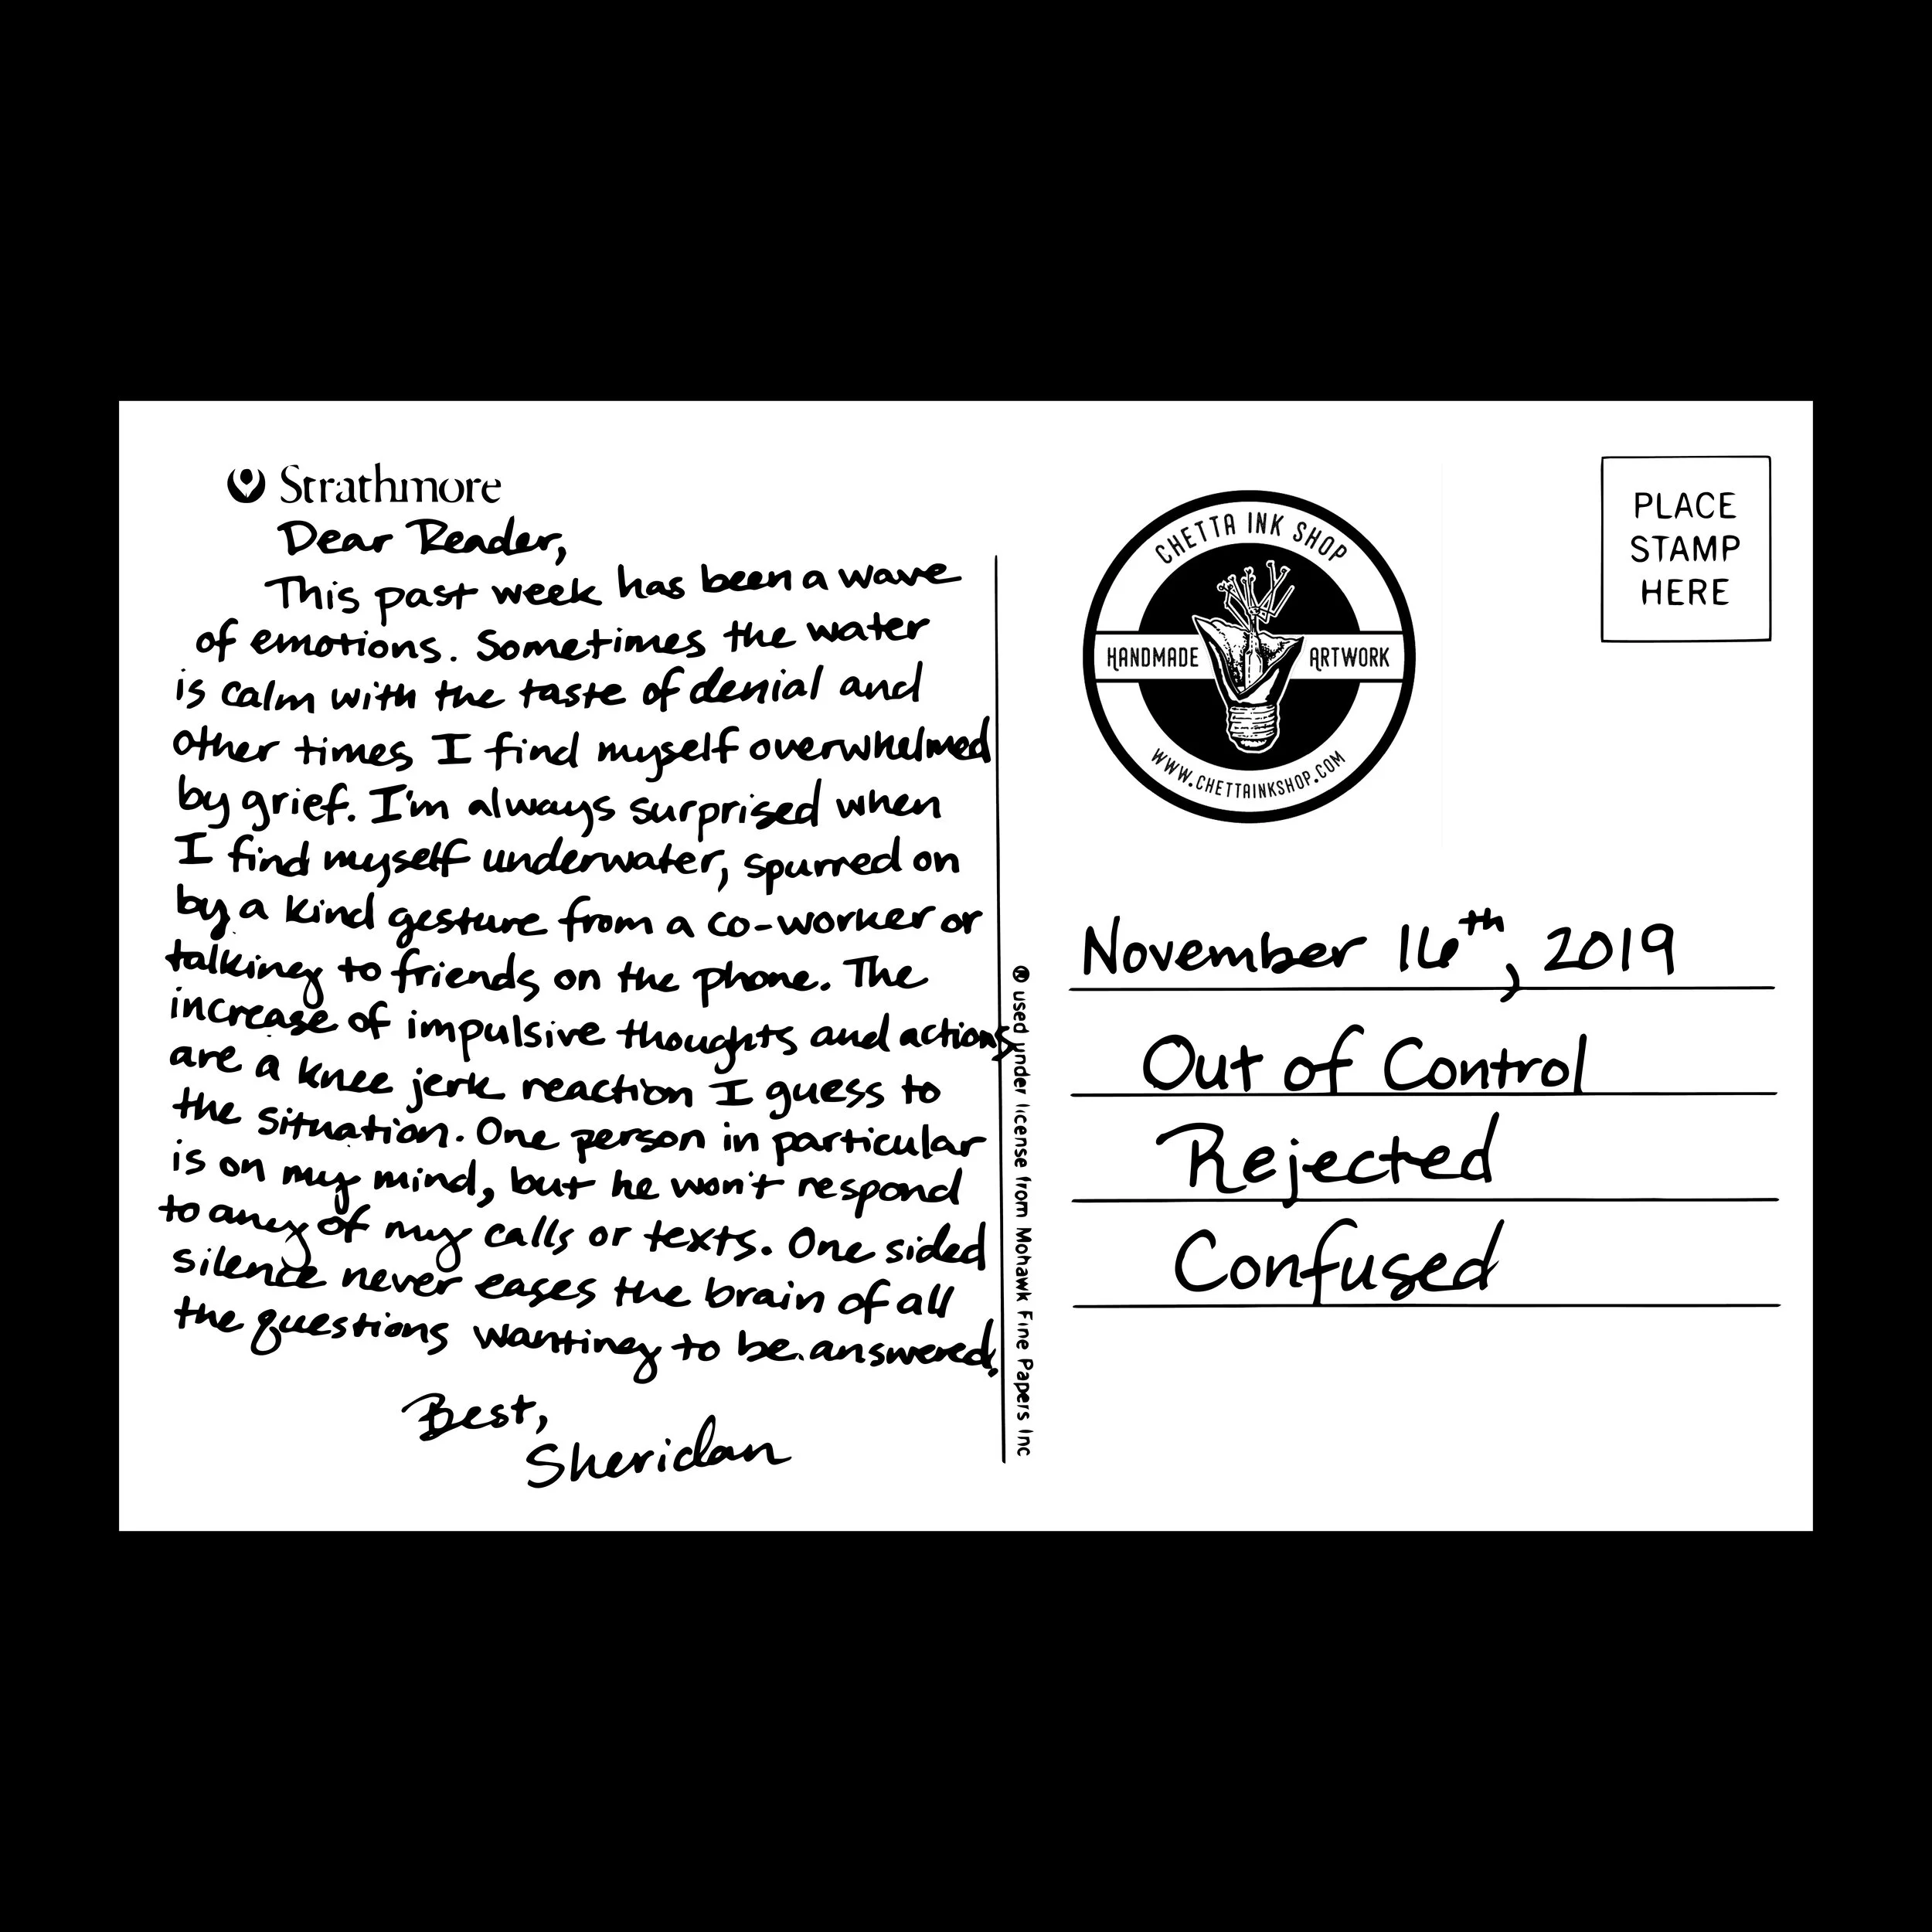 Strathmore
Dear Reader,
This past week has been a wave
of emotions. Sometimes the water
is calm with the taste of denial and
other times I find myself overwhelmed
by grief. I'm always surprised when
I find myself underwater, spurred on
by a kind gesture from a co-worker or
talking to friends on the phone. The
increase of impulsive thoughts and actions
are a knee jerk reaction I guess to
the situation. One person in particular
is on my mind, but he won't respond
to any of my calls or texts. One sided
silence never eases the brain of all
the questions wanting to be answered.
Best,
Sheridan
® used under license from Mohawk Fine Papers Inc
CHETTA INK SHOP
HANDMADE ARTWORK
WWW.CHETTAINKSHOP.COM
PLACE
STAMP
HERE
November 16th, 2019
Out of Control
Rejected
Confused